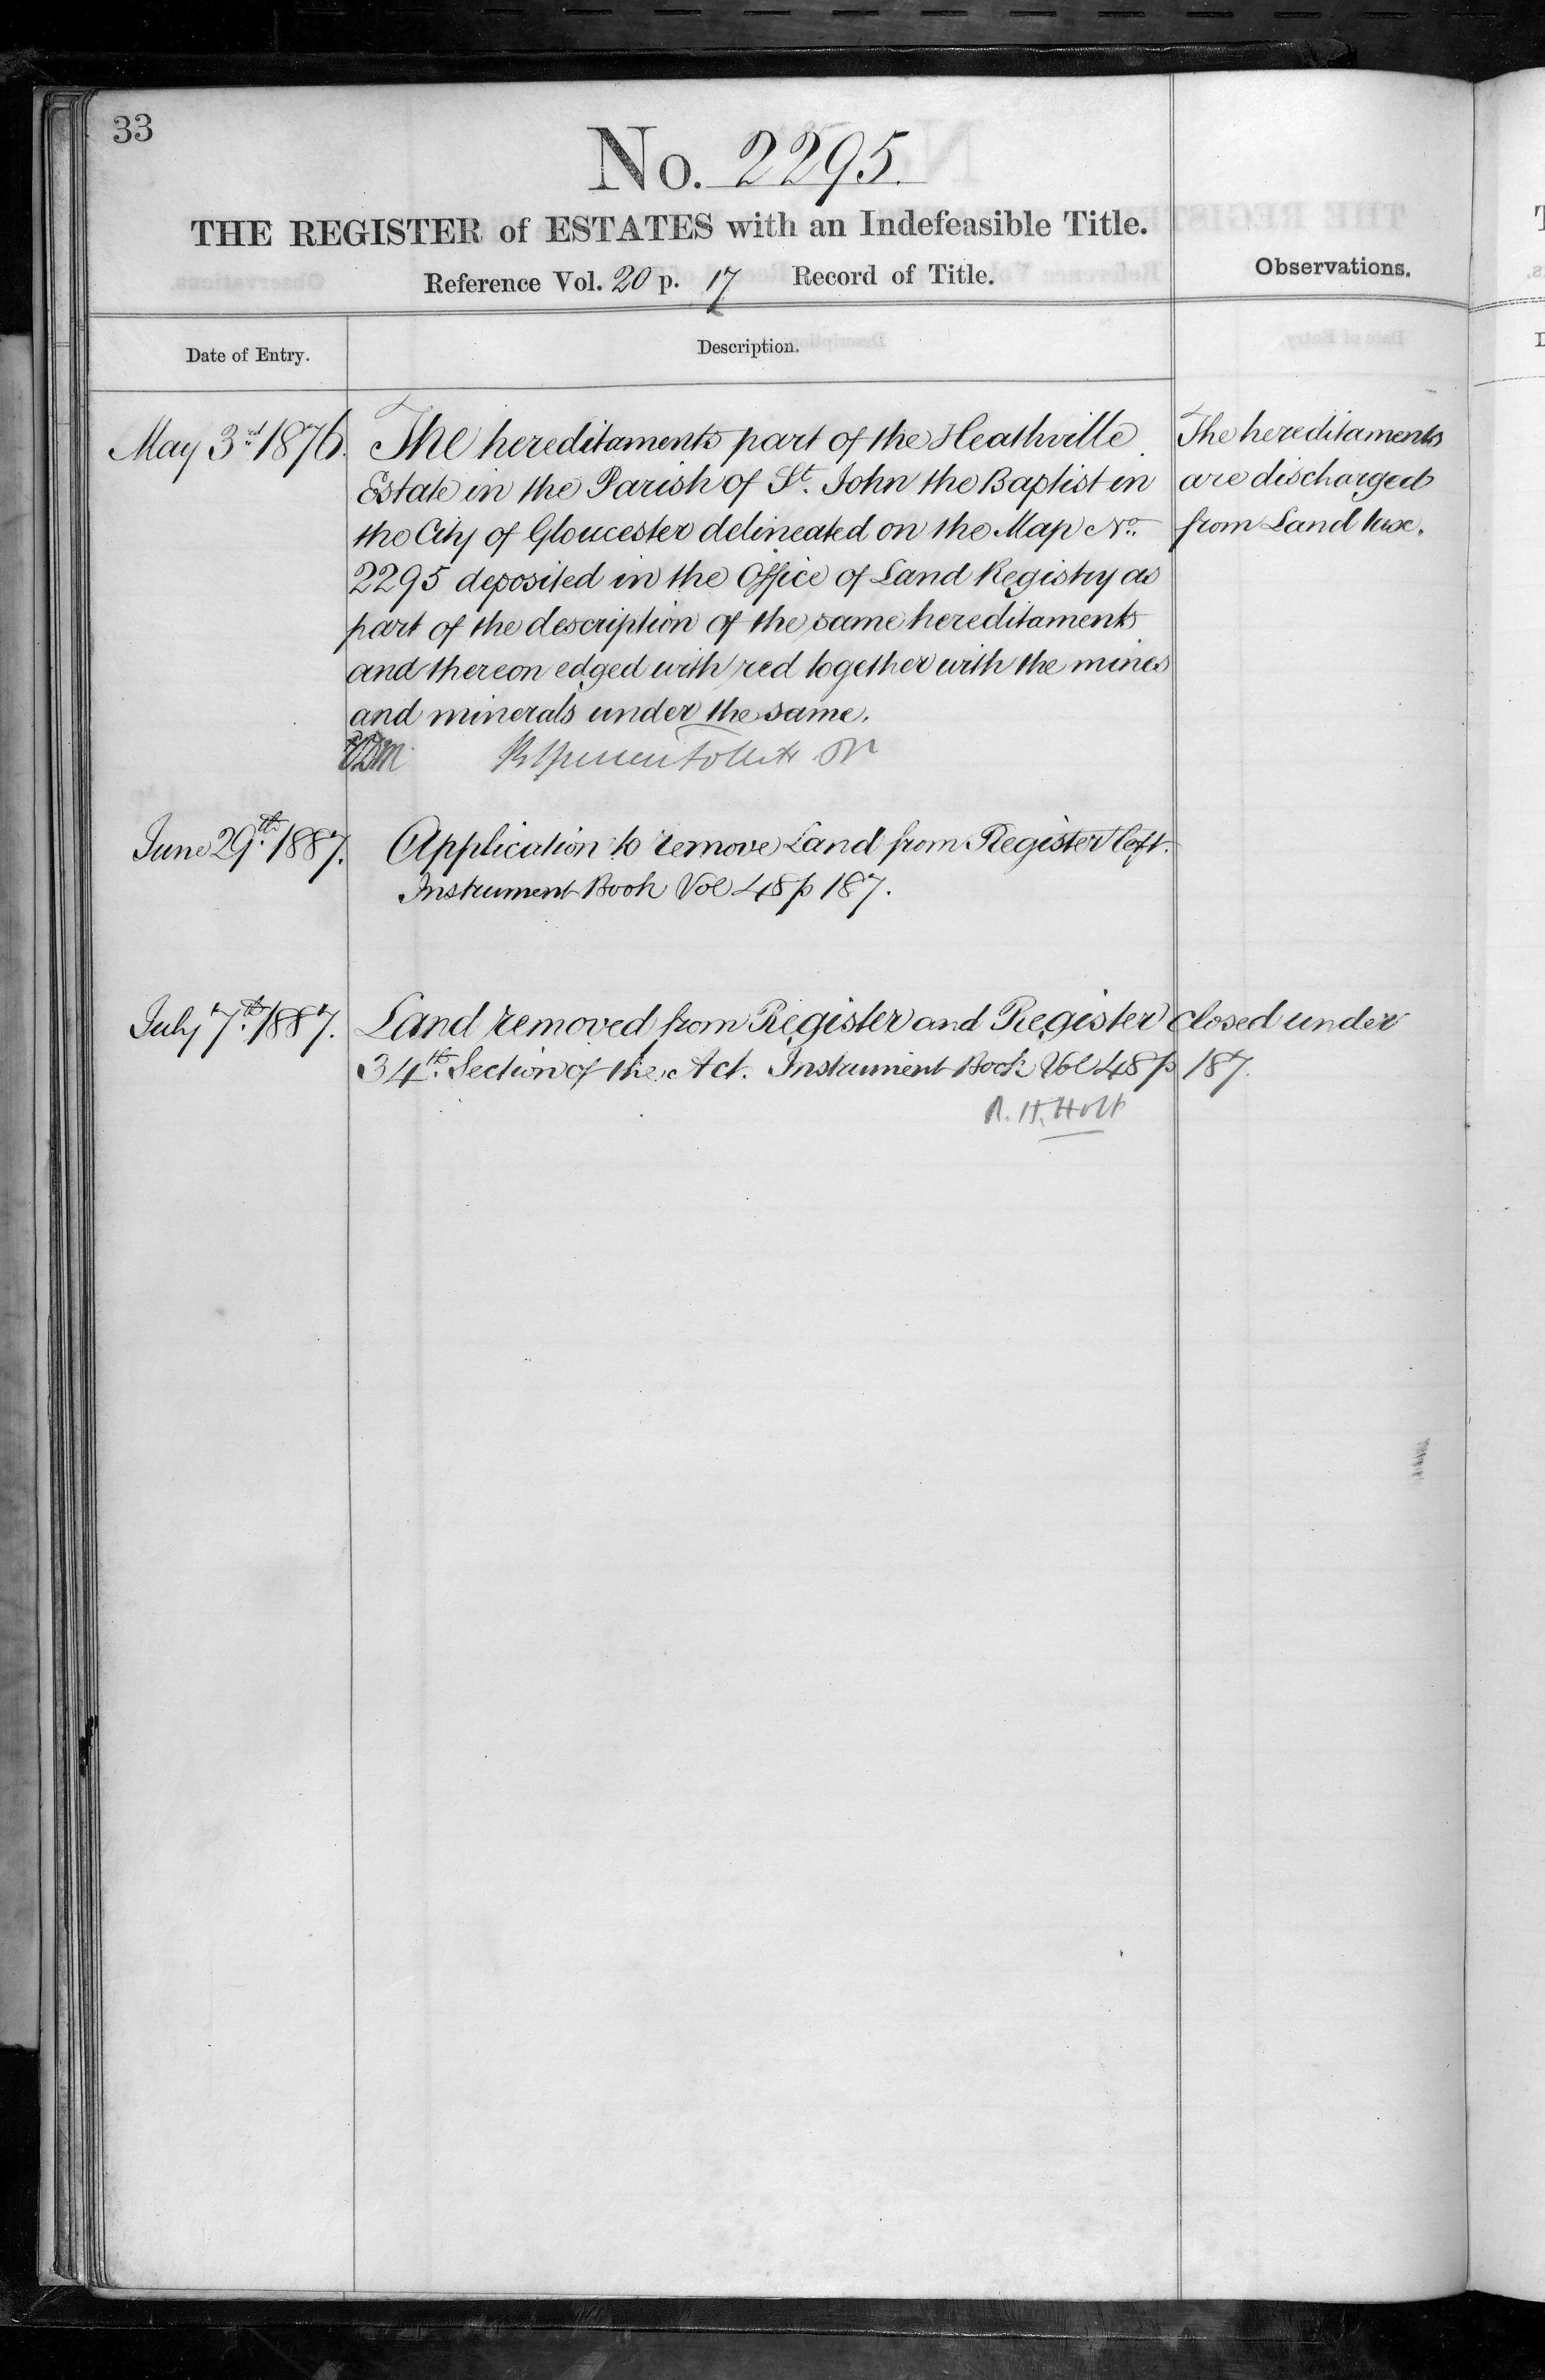 33
No. 2295.
THE REGISTER of ESTATES with an Indefeasible Title.
Reference Vol. 20 p. 17 Record of Title.
Observations.
Date of Entry.
Description.
May 3rd 1876. The hereditaments part of the Heathville
Estate in the Parish of St. John the Baptist in
the City of Gloucester delineated on the Map No.
2295 deposited in the Office of Land Registry as
part of the description of the same hereditaments
and thereon edged with red together with the mines
and minerals under the same.
The hereditaments
are discharged
from Land tax.
June 29th. 1887. Application to remove Land from Register left.
Instrument Book Vol 48 p 187.
July 7th. 1887. Land removed from Register and Register closed under
34th. Section of the Act. Instrument Book Vol 48 p 187.
R. H. Holt